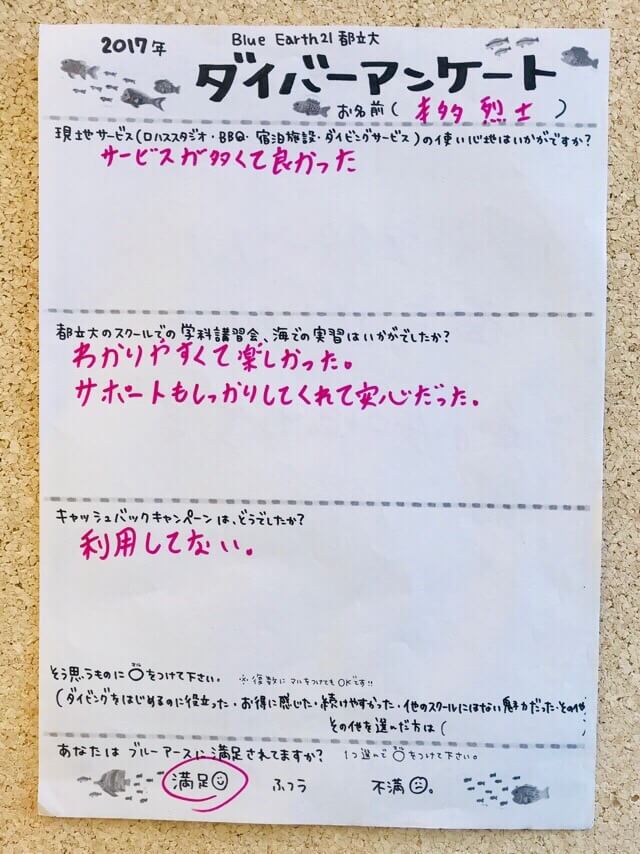 2017年
Blue Earth21 都立大
ダイバーアンケート
お名前 ( 本多 烈士 )
現地サービス(ロハススタジオ・BBQ・宿泊施設・ダイビングサービス)の使い心地はいかがですか?
サービスが多くて良かった
都立大のスクールでの学科講習会、海での実習はいかがでしたか?
わかりやすくて楽しかった。
サポートもしっかりしてくれて安心だった。
キャッシュバックキャンペーンは、どうでしたか?
利用してない。
そう思うものに○をつけて下さい。 ※複数にマルをつけてもOKです!!
(ダイビングをはじめるのに役立った・お得に感じた・続けやすかった・他のスクールにはない魅力だった・その他
その他を選んだ方は( )
あなたは ブルーアースに満足されてますか? 1つ選んで○をつけて下さい。
満足 ふつう 不満。